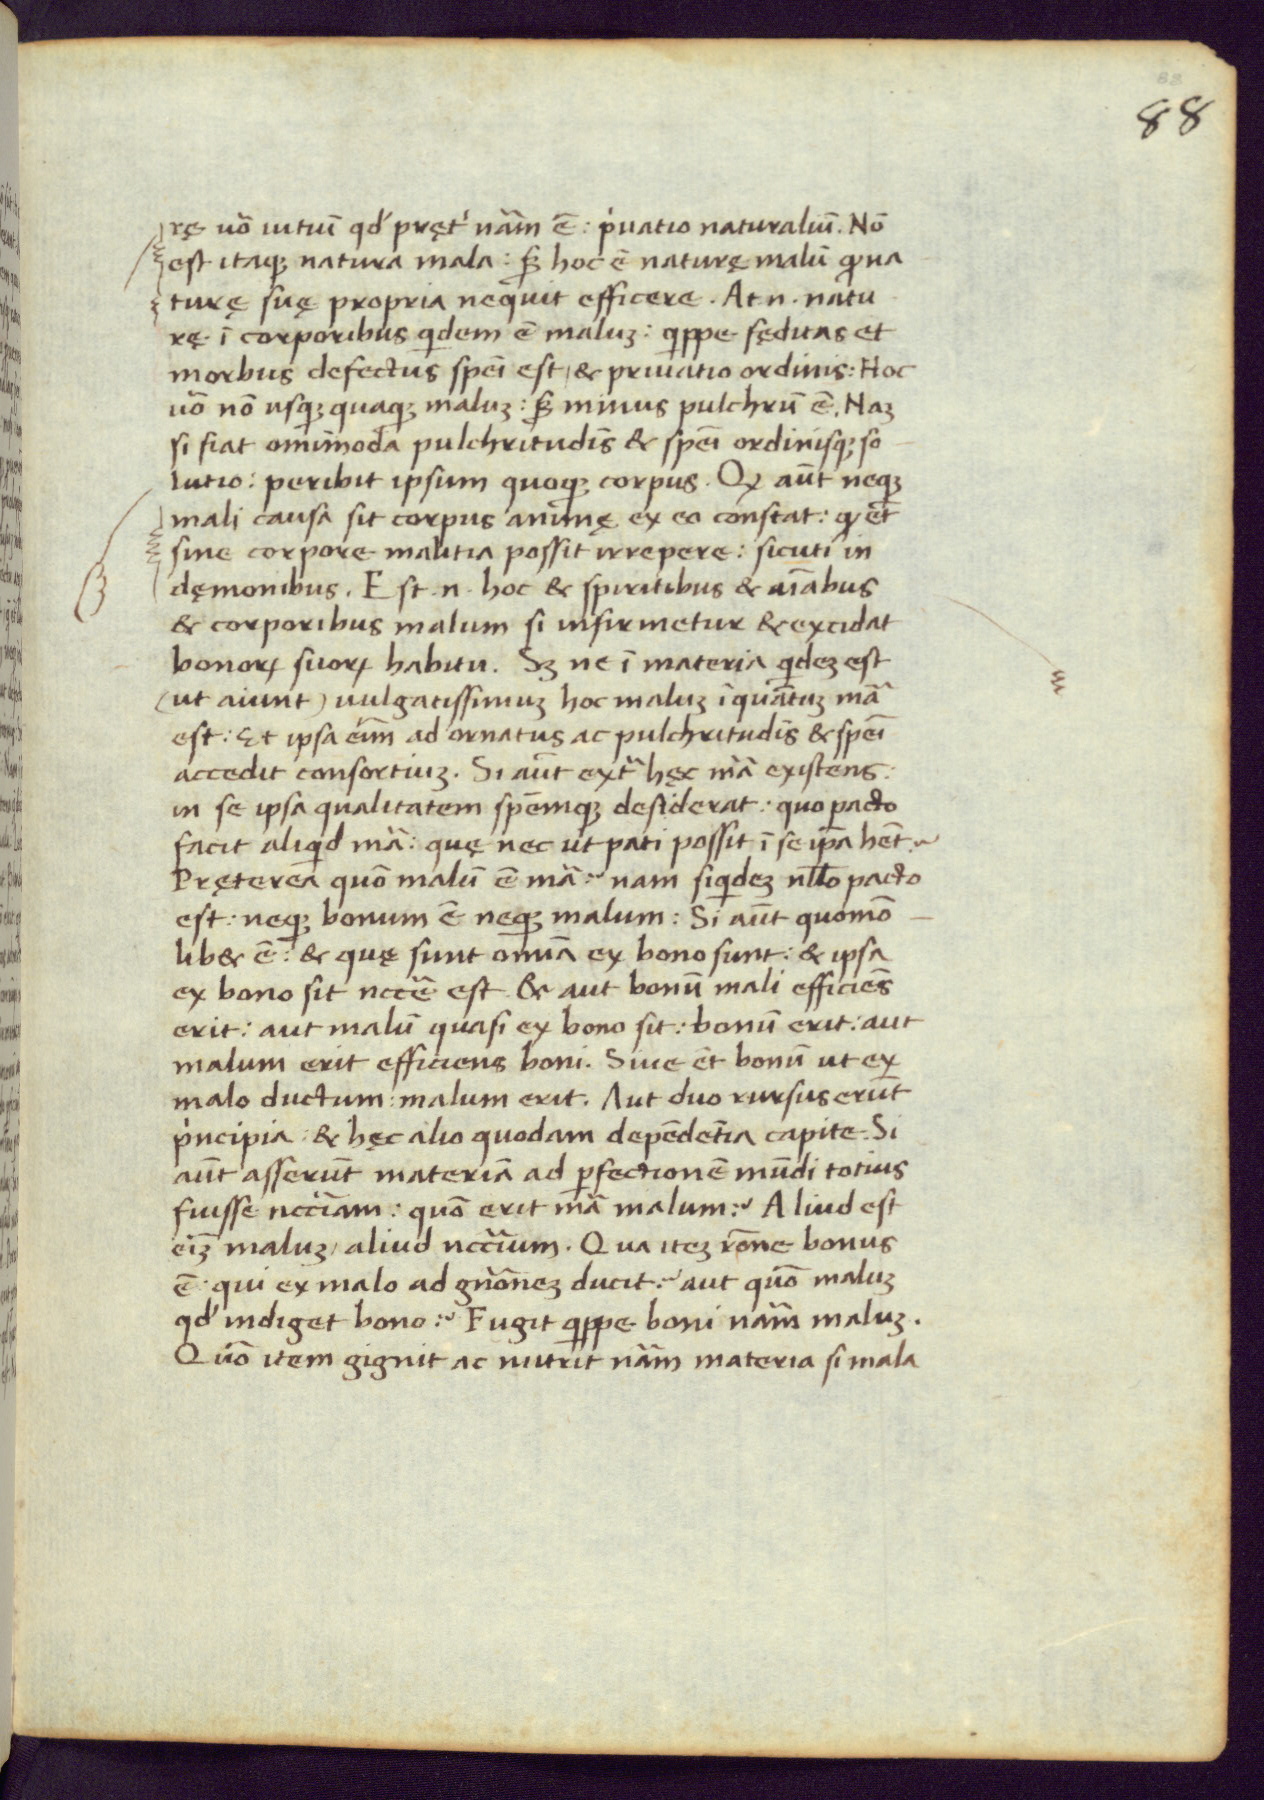 88
88
rę uō uitiū qd' pręt' nām ē: p̍uatio naturaliū. Nō
est itaqꝫ natura mala: sꝫ hoc ē naturę malū ꝙ na
turę suę propria neqͥuit efficere. At .n. natu
rę ī corporibus qͥdem ē maluꝫ: qͥppe fęditas et
morbus defectus spēi est, & priuatio ordinis: Hoc
uō nō usqꝫ quaqꝫ maluꝫ: sꝫ minus pulchrū ē. Naꝫ
si fiat omīmoda pulchritudīs & spēi ordinisqꝫ so
lutio: peribit ipsum quoqꝫ corpus. Qꝙ aūt neqꝫ
mali causa sit corpus animę ex eo constat: ꝙ ēt
sine corpore malitia possit irrepere: sicuti in
dęmonibus. Est .n. hoc & spiritibus & aīabus
& corporibus malum si infirmetur & excidat
bonoꝝ suoꝝ habitu. Sꝫ ne ī materia qͥdeꝫ est
(ut aiunt) uulgatissimuꝫ hoc maluꝫ īquātuꝫ mā
est: Et ipsa eīm ad ornatus ac pulchritudīs & spēi
accedit consortiuꝫ. Si aūt extͣ hęc mā existens:
in se ipsa qualitatem spēmqꝫ desiderat: quo pacto
facit aliqͥd mā: quę nec ut pati possit ī se ip̄a hēt?
Pręterea quō malū ē mā? nam siqͥdeꝫ nllo pacto
est: neqꝫ bonum ē neqꝫ malum: Si aūt quomō
lib& ē: & quę sunt omīa ex bono sunt: & ipsa
ex bono sit nccē est & aut bonū mali efficiēs
erit: aut malū quasi ex bono sit: bonū erit: aut
malum erit efficiens boni. Siue ēt bonū ut ex
malo ductum: malum erit. Aut duo rursus erūt
p̍ncipia: & hęc alio quodam depēdētia capite. Si
aūt asserūt materiā ad ꝑfectionē mūdi totius
fuisse nccīam: quō erit mā malum? Aliud est
eīꝫ maluꝫ, aliud nccīum. Qua iteꝫ rōne bonus
ē: qui ex malo ad gn̄ōneꝫ ducit? aut quō maluꝫ
qd' indiget bono? Fugit qͥppe boni nām maluꝫ.
Quō item gignit ac nutrit nām materia si mala